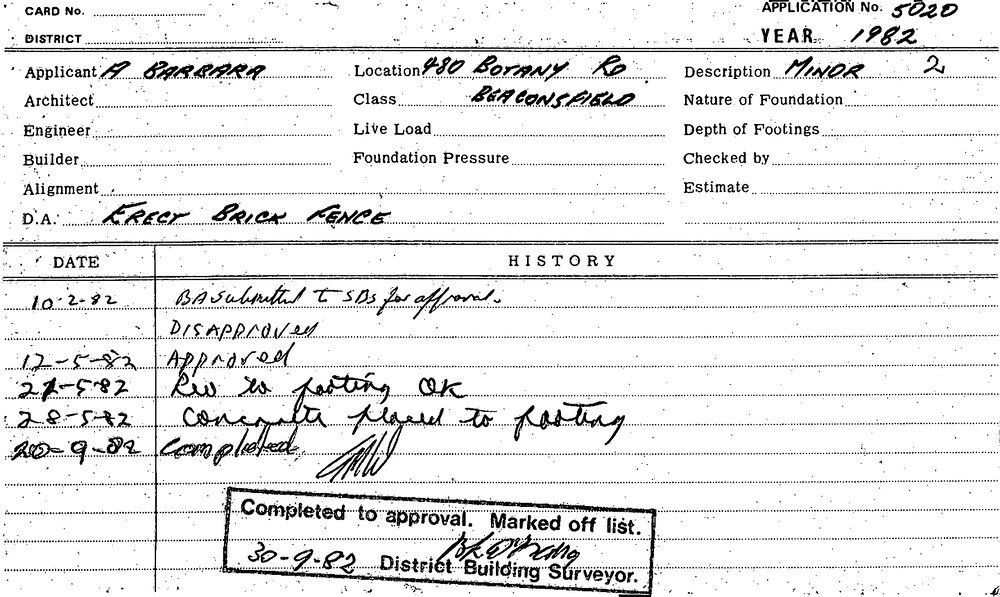 CARD No.
APPLICATION No. 5020
DISTRICT
YEAR 1982
Applicant A BARBARA Location 480 BOTANY RD Description MINOR 2
Architect Class BEACONSFIELD Nature of Foundation
Engineer Live Load Depth of Footings
Builder Foundation Pressure Checked by
Alignment Estimate
D.A. ERECT BRICK FENCE
DATE HISTORY
10-2-82 BA Submitted to SBs for approval.
DISAPPROVED
12-5-82 APPROVED
21-5-82 to footing OK
28-5-82 Concrete placed to footing
20-9-82 Completed
Completed to approval. Marked off list.
30-9-82 District Building Surveyor.